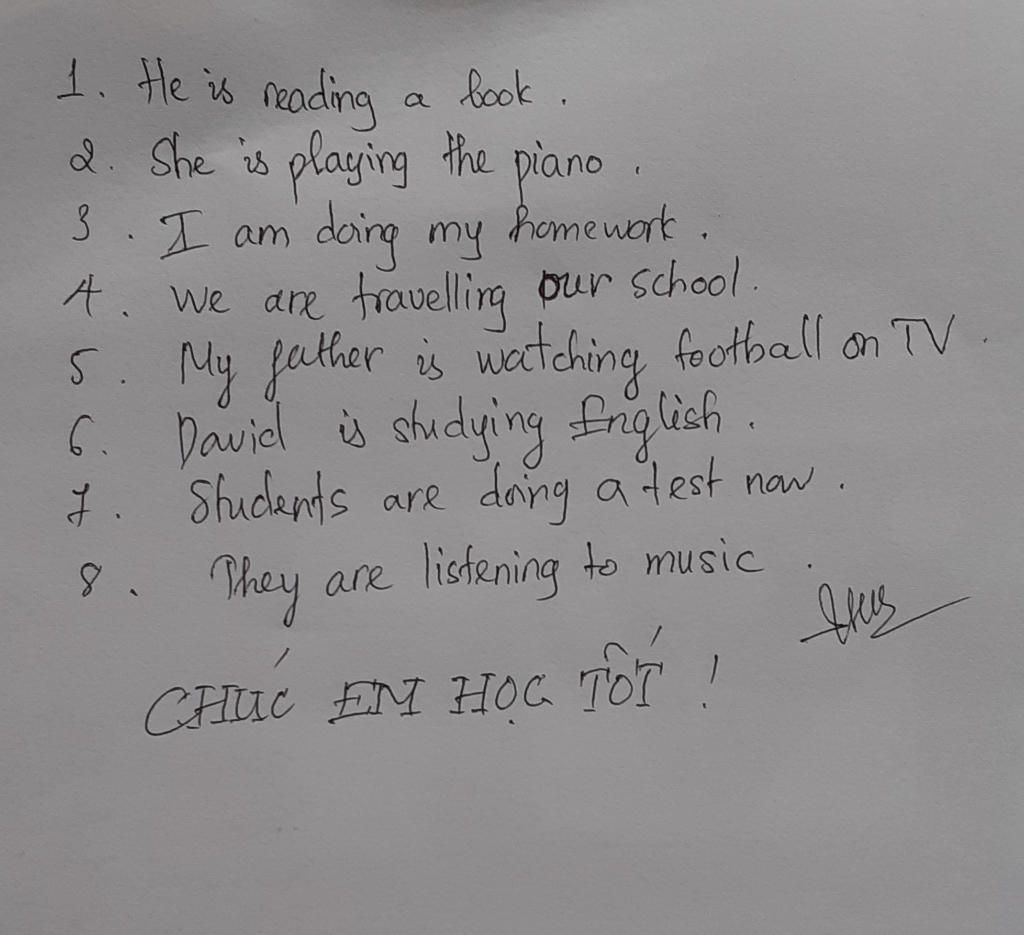 1. He is reading a book.
2. She is playing the piano.
3. I am doing my homework.
4. We are travelling our school.
5. My father is watching football on TV.
6. David is studying English.
7. Students are doing a test now.
8. They are listening to music.
CHÚC EM HỌC TỐT!